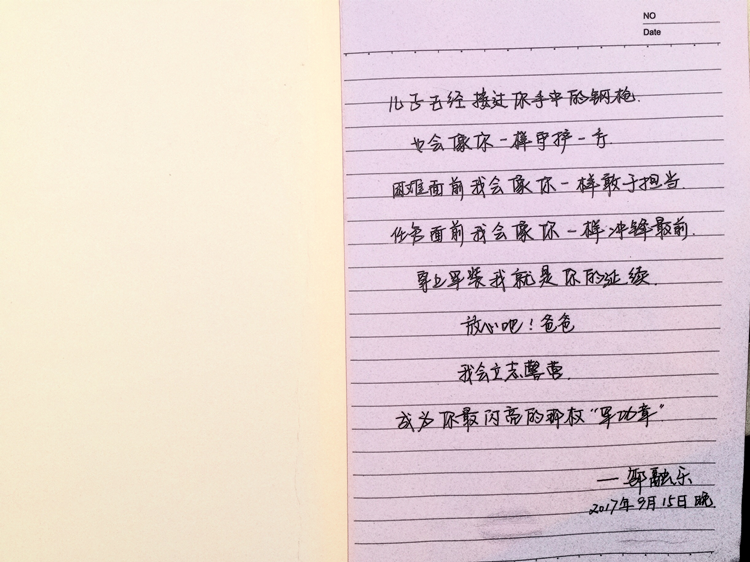 NO
Date
儿子已经接过你手中的钢枪.
也会像你一样守护一方.
困难面前我会像你一样敢于担当.
任务面前我会像你一样冲锋最前.
穿上军装我就是你的延续.
放心吧！爸爸
我会立志警营.
成为你最闪亮的那枚“军功章”
—邹融乐
2017年9月15日晚